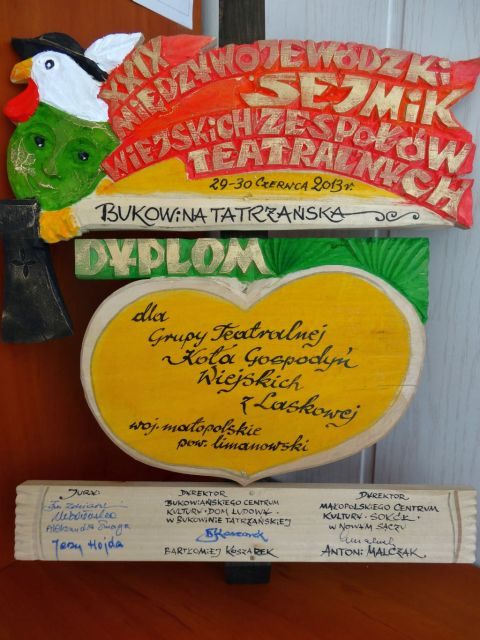 XXIX
MIĘDZYWOJEWÓDZKI
SEJMIK
WIEJSKICH ZESPOŁÓW
TEATRALNYCH
29-30 CZERWCA 2013 r.
BUKOWINA TATRZAŃSKA
DYPLOM
dla
Grupy Teatralnej
Koła Gospodyń
Wiejskich
z Laskowej
woj. małopolskie
pow. limanowski
JURY:
Jerzy Hojda
DYREKTOR
BUKOWIAŃSKIEGO CENTRUM
KULTURY "DOM LUDOWY"
W BUKOWINIE TATRZAŃSKIEJ
BARTŁOMIEJ KOSZAREK
DYREKTOR
MAŁOPOLSKIEGO CENTRUM
KULTURY "SOKÓŁ"
W NOWYM SĄCZU
ANTONI MALCZAK